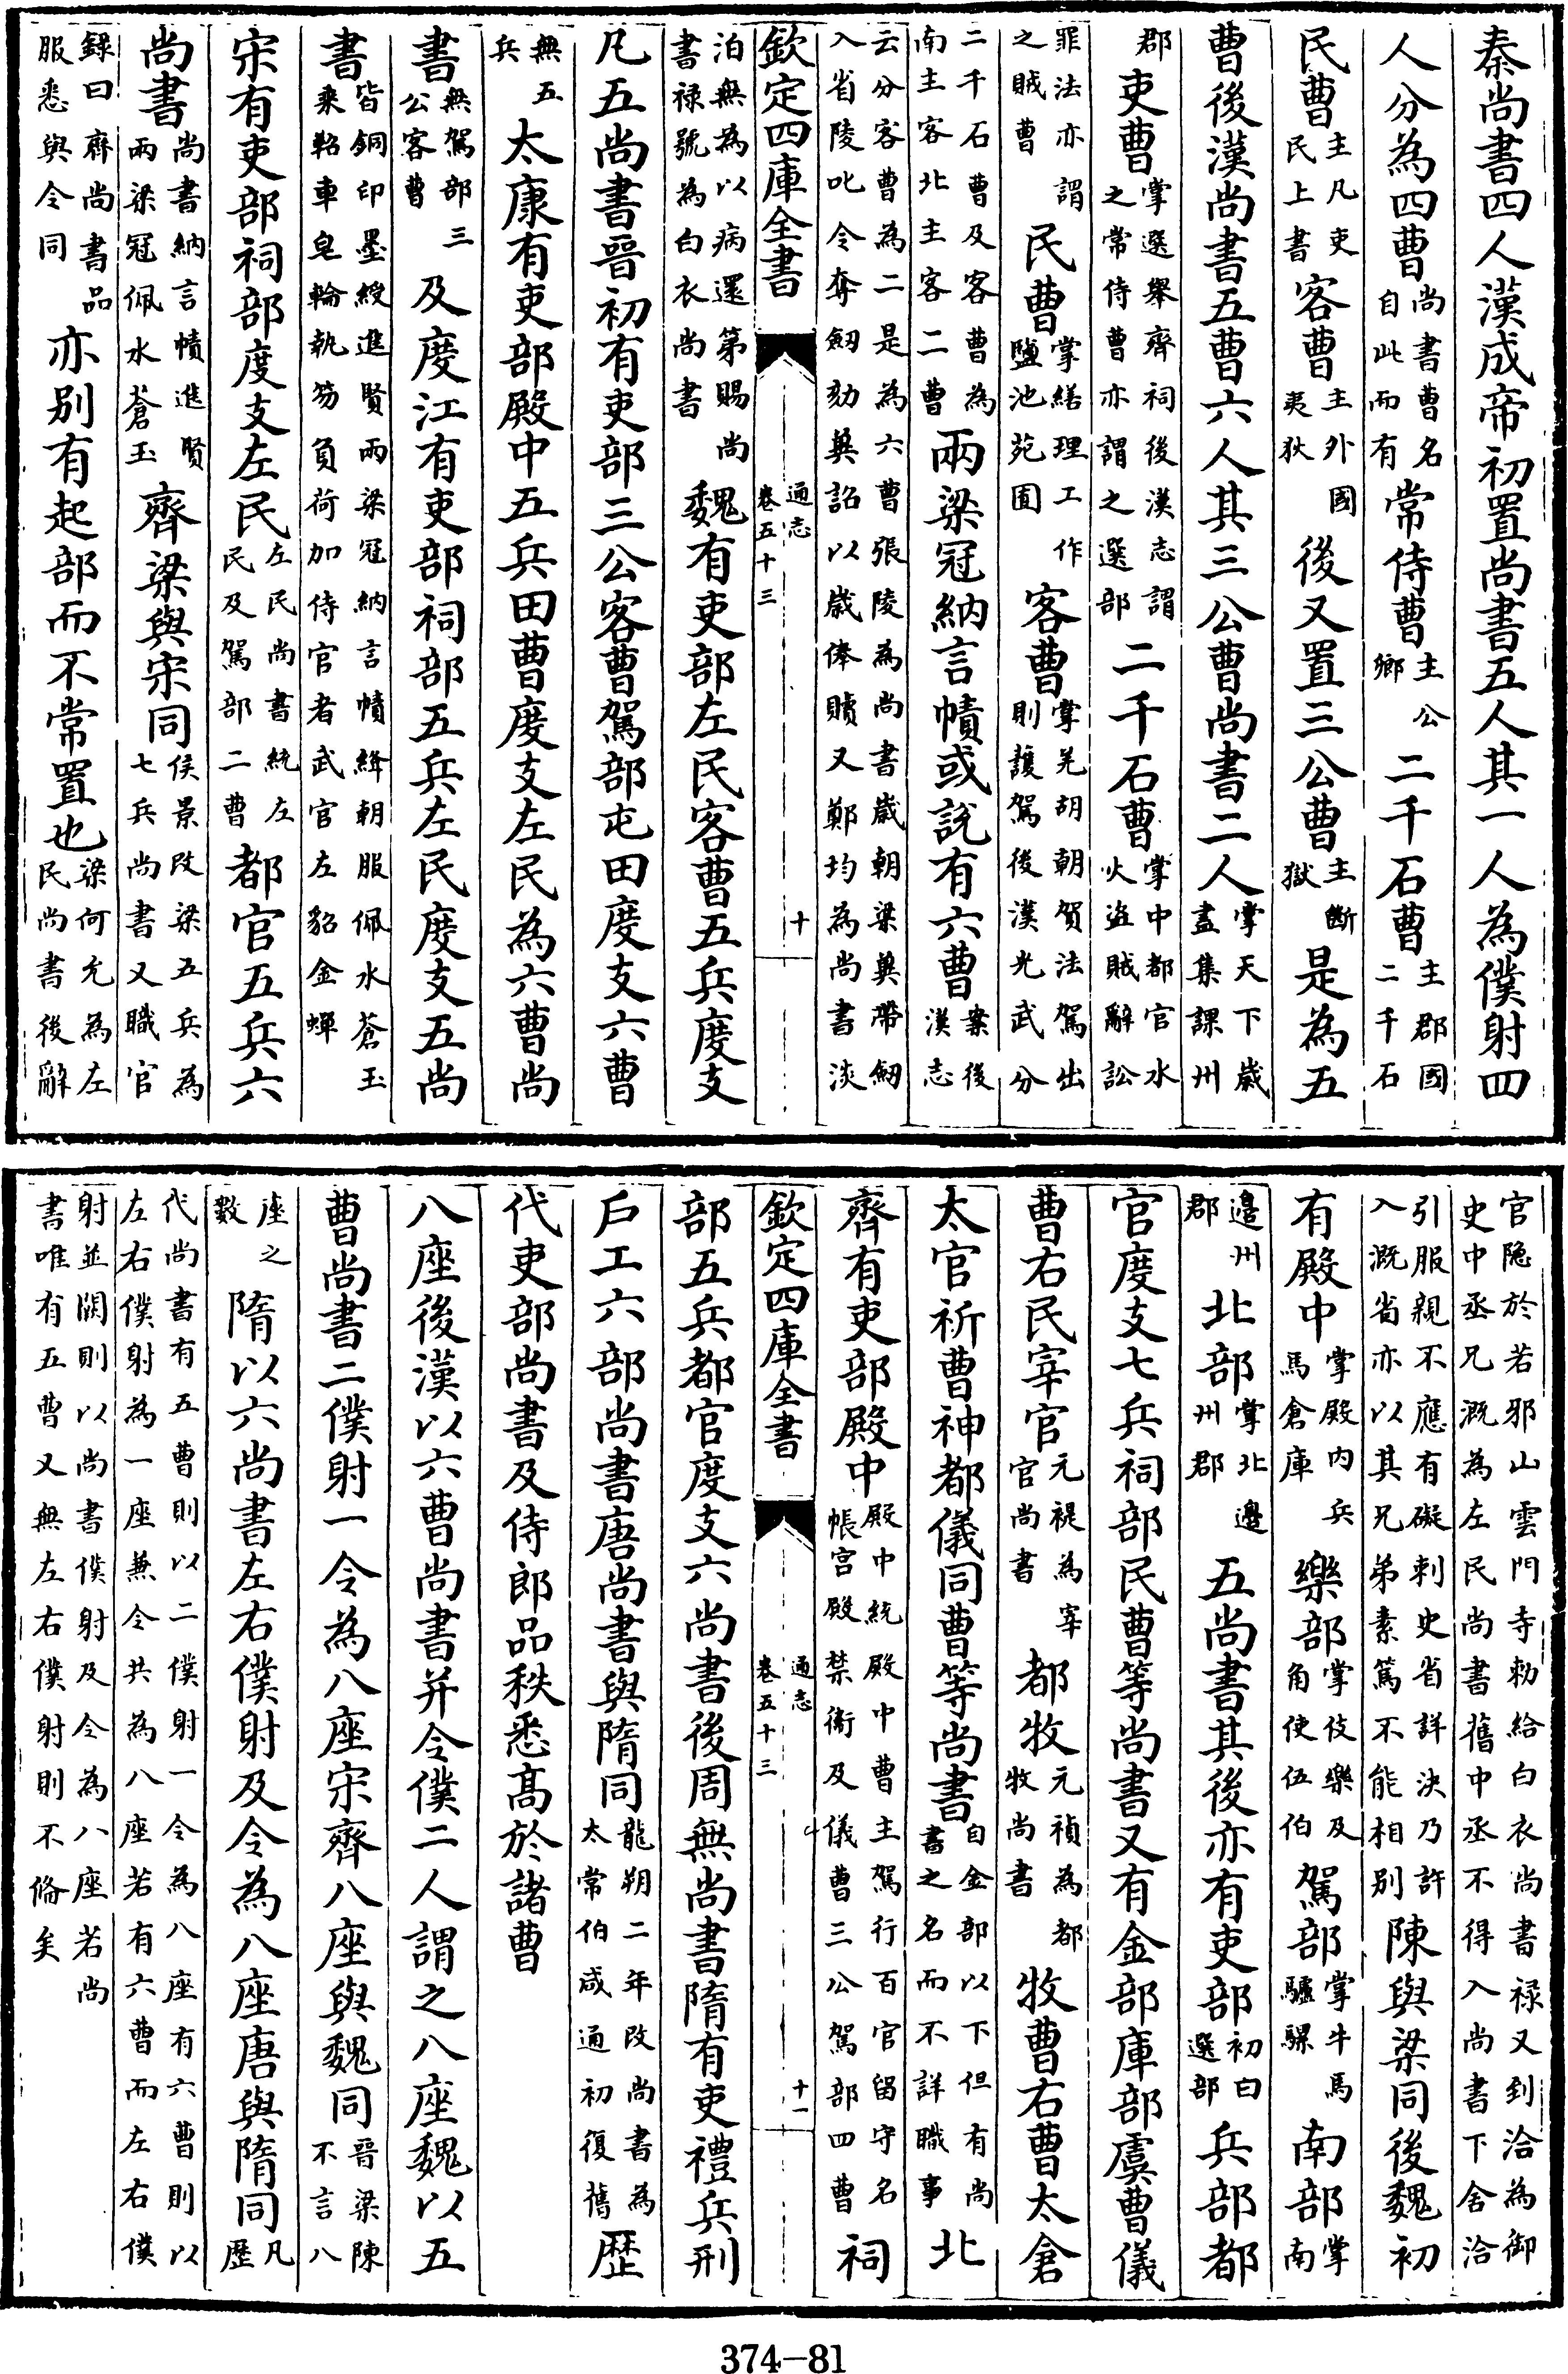 秦尚書四人漢成帝初置尚書五人其一人為僕射四
人分為四曹尚書曹名自此而有常侍曹主公卿二千石曹主郡國二千石
民曹主凡吏民上書客曹主外國夷狄後又置三公曹主斷獄是為五
曹後漢尚書五曹六人其三公曹尚書二人掌天下歲盡集課州
郡吏曹掌選舉齊祠後漢志謂之常侍曹亦謂之選部二千石曹掌中都官水火盜賊辭訟
罪法亦謂之賊曹民曹掌繕理工作鹽池苑囿客曹掌羌胡朝賀法駕出則護駕後漢光武分
二千石曹及客曹為南主客北主客二曹兩梁冠納言幘或說有六曹案後漢志
云分客曹為二是為六曹張陵為尚書歲朝梁冀帶劒入省陵叱令奪劒劾冀詔以歲俸贖又鄭均為尚書淡
欽定四庫全書 通志卷五十三 十
泊無為以病還第賜尚書祿號為白衣尚書魏有吏部左民客曹五兵度支
凡五尚書晉初有吏部三公客曹駕部屯田度支六曹
無五兵太康有吏部殿中五兵田曹度支左民為六曹尚
書無駕部三公客曹及度江有吏部祠部五兵左民度支五尚
書皆銅印墨綬進賢兩梁冠納言幘緋朝服佩水蒼玉乘軺車皂輪執笏負荷加侍官者武官左貂金蟬
宋有吏部祠部度支左民左民尚書統左民及駕部二曹都官五兵六
尚書尚書納言幘進賢兩梁冠佩水蒼玉齊梁與宋同侯景改梁五兵為七兵尚書又職官
錄曰齊尚書品服悉與令同亦別有起部而不常置也梁何允為左民尚書後辭
官隐於若邪山雲門寺勅給白衣尚書祿又到洽為御史中丞兄溉為左民尚書舊中丞不得入尚書下舍洽
引服親不應有礙刺史省詳決乃許入溉省亦以其兄弟素篤不能相別陳與梁同後魏初
有殿中掌殿內兵馬倉庫樂部掌伎樂及角使伍伯駕部掌牛馬驢騾南部掌南
邉州郡北部掌北邉州郡五尚書其後亦有吏部初曰選部兵部都
官度支七兵祠部民曹等尚書又有金部庫部虞曹儀
曹右民宰官元禔為宰官尚書都牧元禎為都牧尚書牧曹右曹太倉
太官祈曹神都儀同曹等尚書自金部以下但有尚書之名而不詳職事北
齊有吏部殿中殿中統殿中曹主駕行百官留守名帳宫殿禁衛及儀曹三公駕部四曹祠
欽定四庫全書 通志卷五十三 十一
部五兵都官度支六尚書後周無尚書隋有吏禮兵刑
戶工六部尚書唐尚書與隋同龍朔二年改尚書為太常伯咸通初復舊歴
代吏部尚書及侍郎品秩悉高於諸曹
八座後漢以六曹尚書并令僕二人謂之八座魏以五
曹尚書二僕射一令為八座宋齊八座與魏同晉梁陳不言八
座之數隋以六尚書左右僕射及令為八座唐與隋同凡歴
代尚書有五曹則以二僕射一令為八座有六曹則以左右僕射為一座兼令共為八座若有六曹而左右僕
射並闕則以尚書僕射及令為八座若尚書唯有五曹又無左右僕射則不備矣
374-81